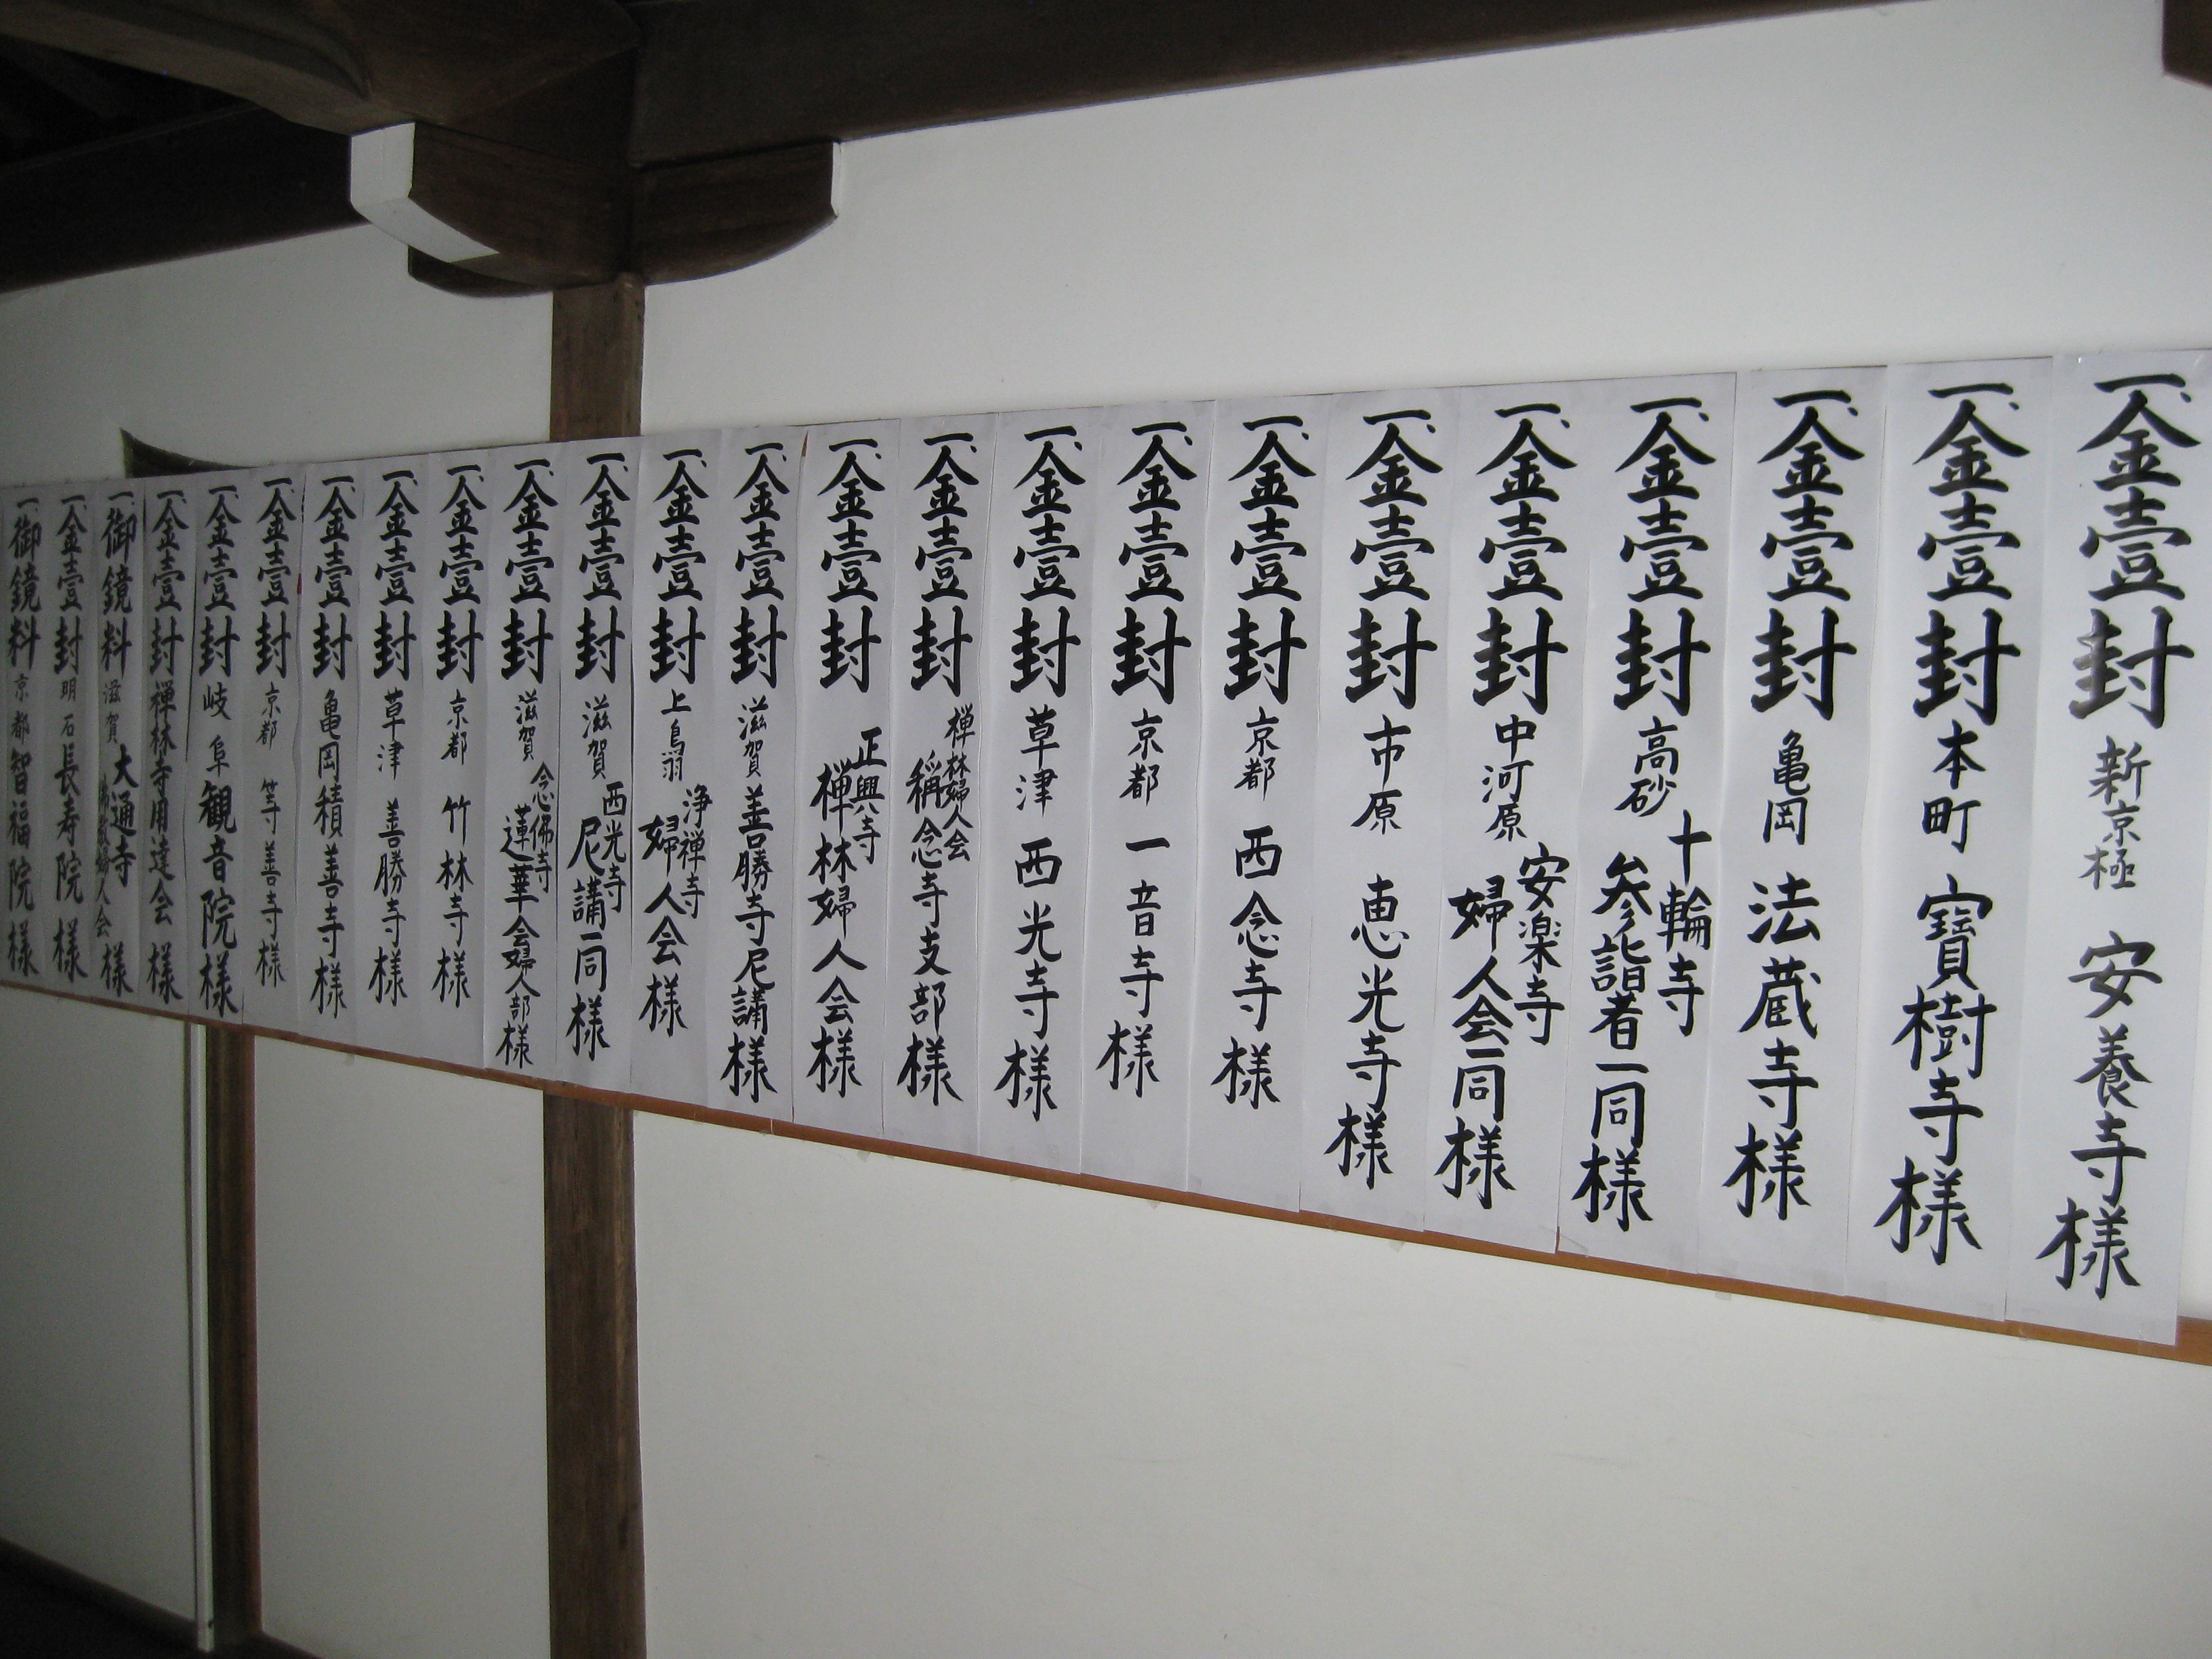 一、金壹封 新京極 安養寺様
一、金壹封 本町 寶樹寺様
一、金壹封 亀岡 法蔵寺様
一、金壹封 高砂 十輪寺 参詣者一同様
一、金壹封 中河原 安楽寺 婦人会一同様
一、金壹封 市原 恵光寺様
一、金壹封 京都 西念寺様
一、金壹封 京都 一音寺様
一、金壹封 草津 西光寺様
一、金壹封 禅林婦人会 稱念寺支部様
一、金壹封 正興寺 禅林婦人会様
一、金壹封 滋賀 善勝寺尼講様
一、金壹封 上鳥羽 浄禅寺 婦人会様
一、金壹封 滋賀 西光寺 尼講一同様
一、金壹封 滋賀 念佛寺 蓮華会婦人部様
一、金壹封 京都 竹林寺様
一、金壹封 草津 善勝寺様
一、金壹封 亀岡 積善寺様
一、金壹封 京都 等善寺様
一、金壹封 岐阜 観音院様
一、金壹封 禅林寺用達会様
一、御鏡料 滋賀 大通寺 佛教婦人会様
一、金壹封 明石 長寿院様
一、御鏡料 京都 智福院様